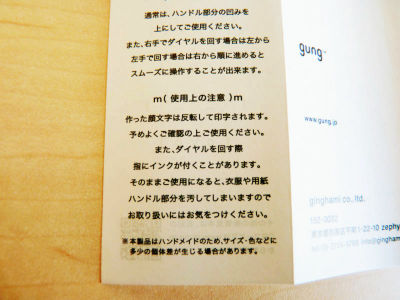 通常は、ハンドル部分の凹みを
上にしてご使用ください。
また、右手でダイヤルを回す場合は左から
左手で回す場合は右から順に進めると
スムーズに操作することが出来ます。
m( 使用上の注意 )m
作った顔文字は反転して印字されます。
予めよくご確認の上ご使用ください。
また、ダイヤルを回す際
指にインクが付くことがあります。
そのままご使用になると、衣服や用紙
ハンドル部分を汚してしまいますので
お取り扱いにはお気をつけください。
※本製品はハンドメイドのため、サイズ・色などに
多少の個体差が生じる場合があります。
gung
www.gung.jp
ginghami co., ltd.
152-0032
1-22-10 zephy
info@gingham